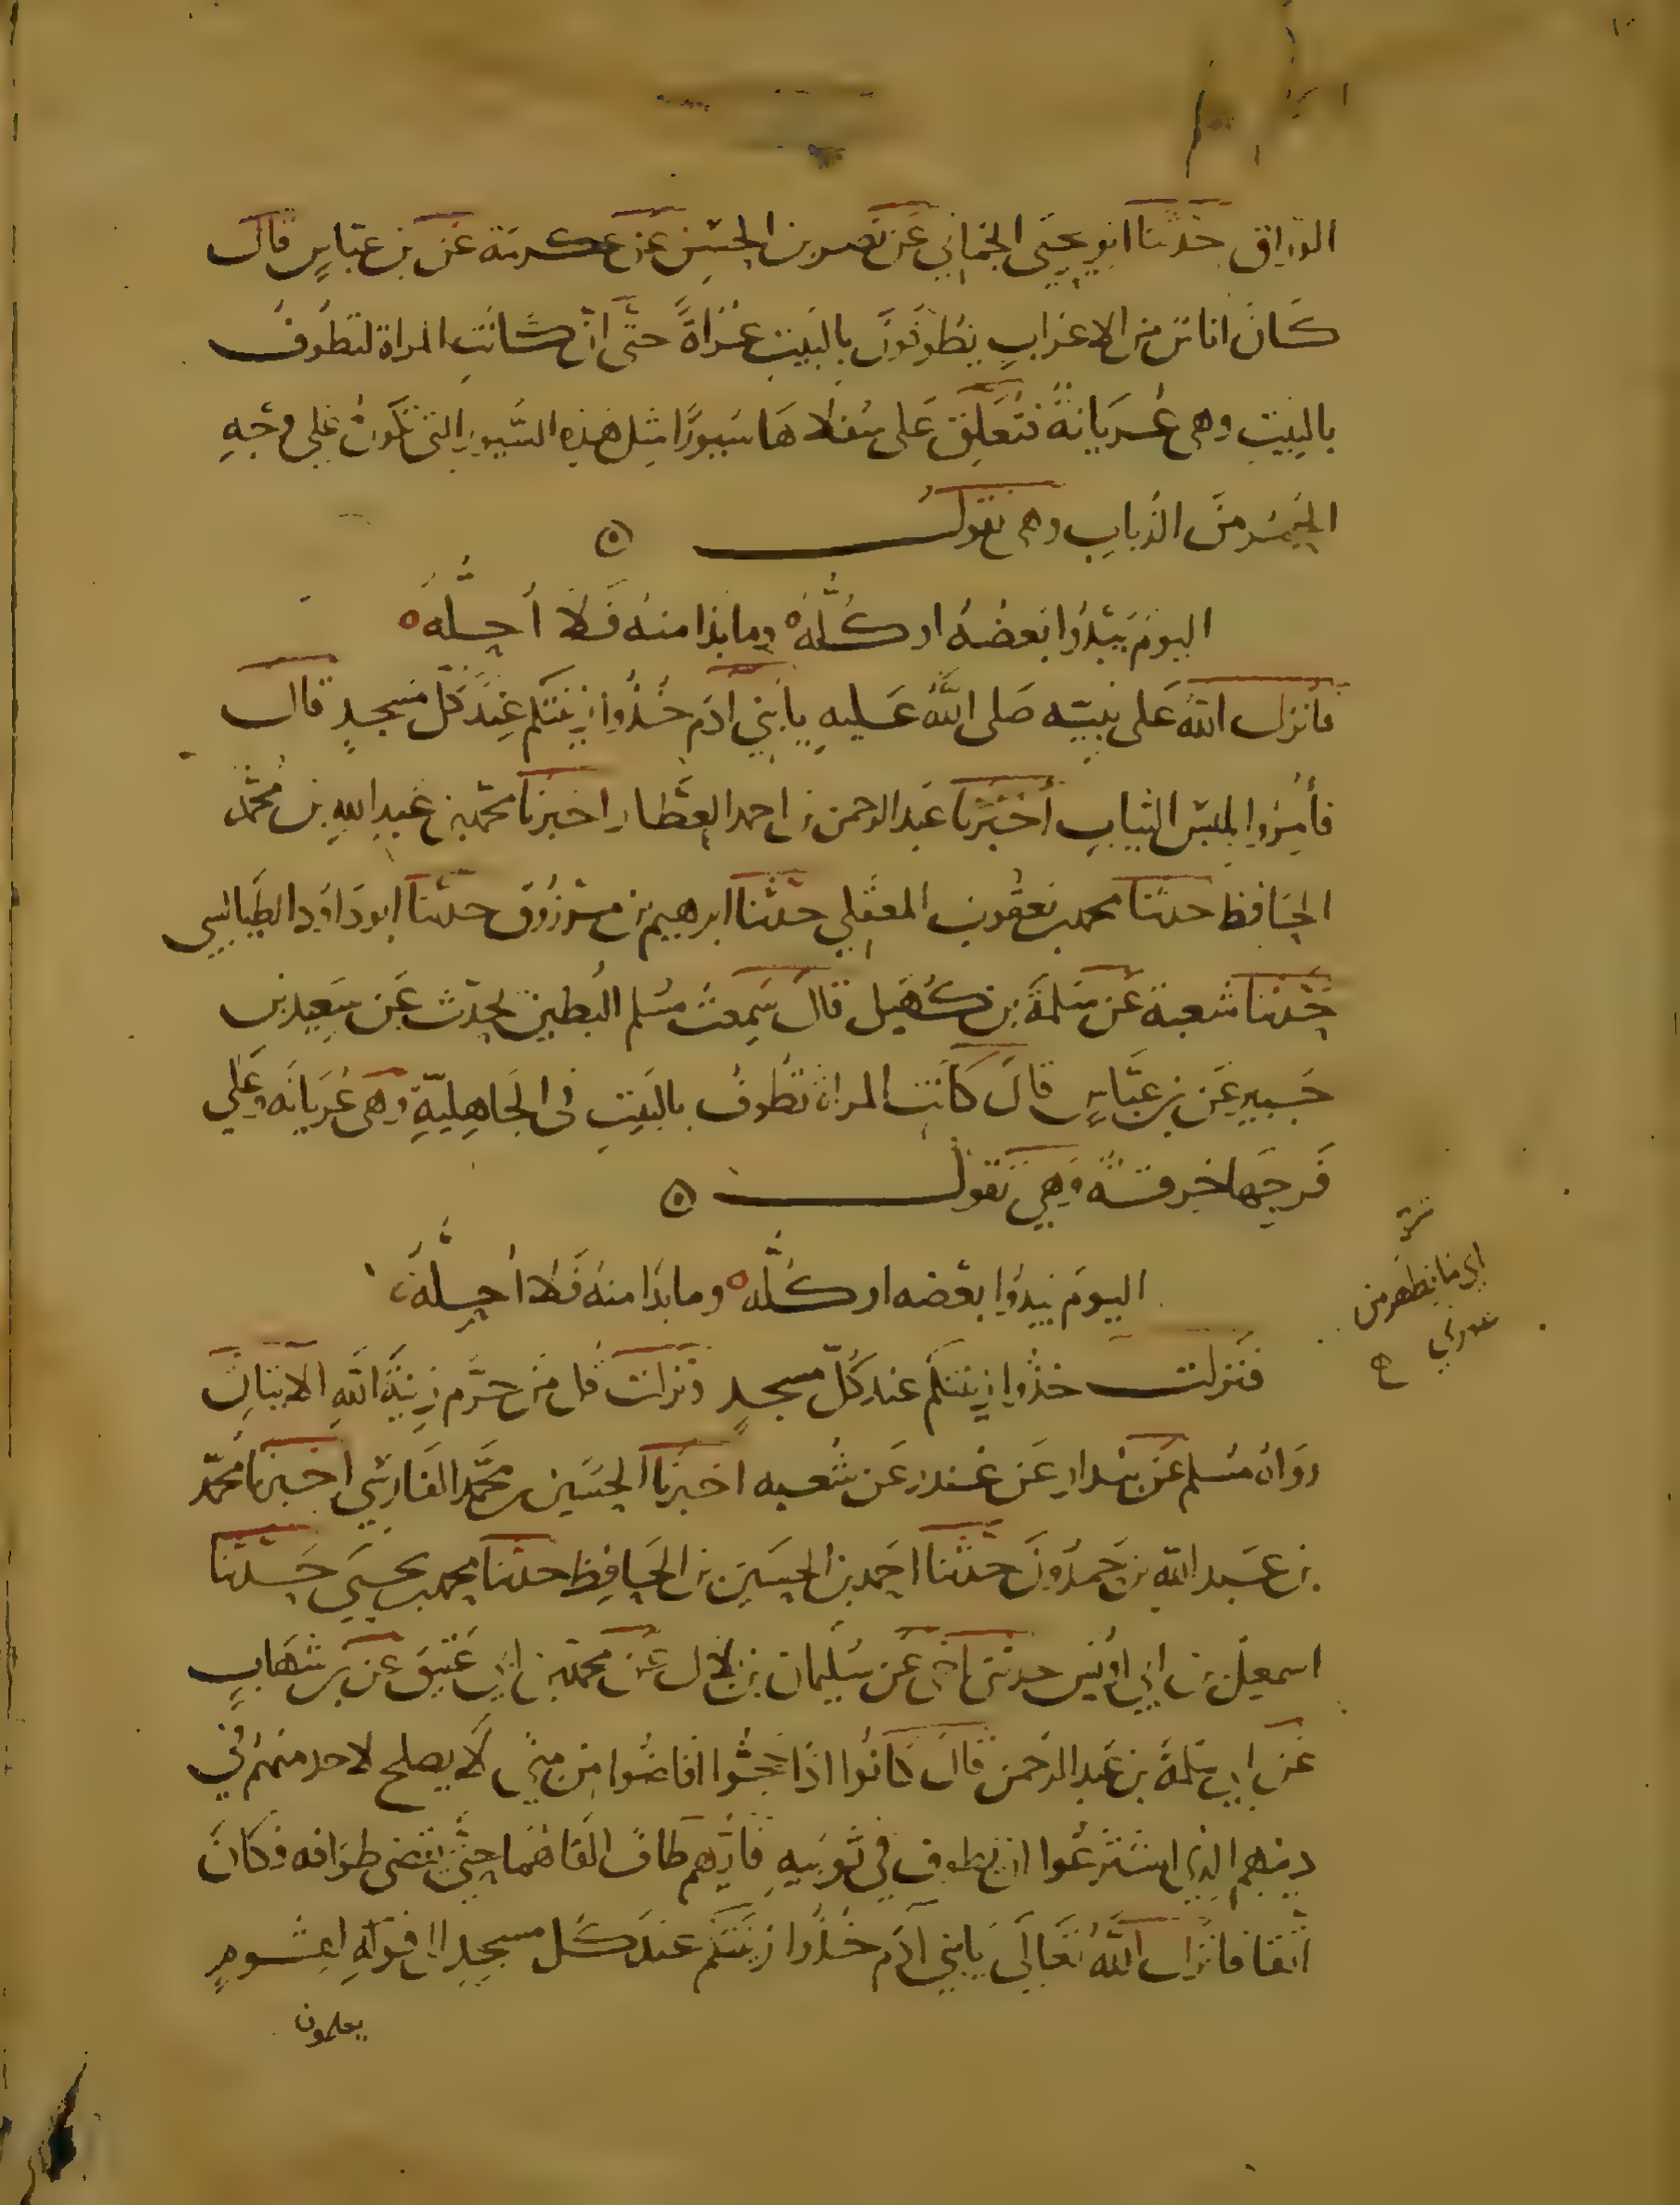 الوراق حدثنا ابو يحيى الحماني عن نصر بن الحسن عن عكرمة عن بن عباس قال
كان اناس من الاعراب يطوفون بالبيت عراة حتى ان كانت المراة لتطوف
بالبيت وهى عريانة فتعلق على سفلاها سيورا مثل هذه السيور التى تكون على وجه
الحمر من الذباب وهى تقول
اليوم يبدوا بعضه او كله وما بدا منه فلا أحله
فانزل الله على نبيه صلى الله عليه يا بني آدم خذوا زينتكم عند كل مسجد قال
فأمروا بلبس الثياب أخبرنا عبد الرحمن بن احمد العطار اخبرنا محمد بن عبد الله بن محمد
الحافظ حدثنا محمد بن يعقوب المعقلي حدثنا ابرهيم بن مرزوق حدثنا ابو داود الطيالسي
حدثنا شعبة عن سلمة بن كهيل قال سمعت مسلم البطين يحدث عن سعيد بن
جبير عن بن عباس قال كانت المراة تطوف بالبيت فى الجاهلية وهى عريانه وعلى
فرجها خرقة وهي تقول
اليوم يبدوا بعضه او كله وما بدا منه فلا أحله
فنزلت خذوا زينتكم عند كل مسجد ونزلت قل من حرم زينة الله الآيتان
رواه مسلم عن بندار عن غندر عن شعبه اخبرنا الحسين بن محمد الفارسي اخبرنا محمد
بن عبد الله بن حمدون حدثنا احمد بن الحسين بن الحافظ حدثنا محمد بن يحيى حدثنا
اسمعيل بن ابي اويس حدثنى اخى عن سليمان بن بلال عن محمد بن ابي عتيق عن بن شهاب
عن ابي سلمة بن عبد الرحمن قال كانوا اذا حجوا افاضوا من منى لا يصلح لاحد منهم في
دينهم الذى اشترعوا ان يطوف في ثوبيه فايهم طاف القاهما حتى يقضى طوافه وكان
اتقا فانزل الله تعالى يا بني آدم خذوا زينتكم عند كل مسجد الى قوله لقوم
يعلمون
اى ما يظهر من
عورتي